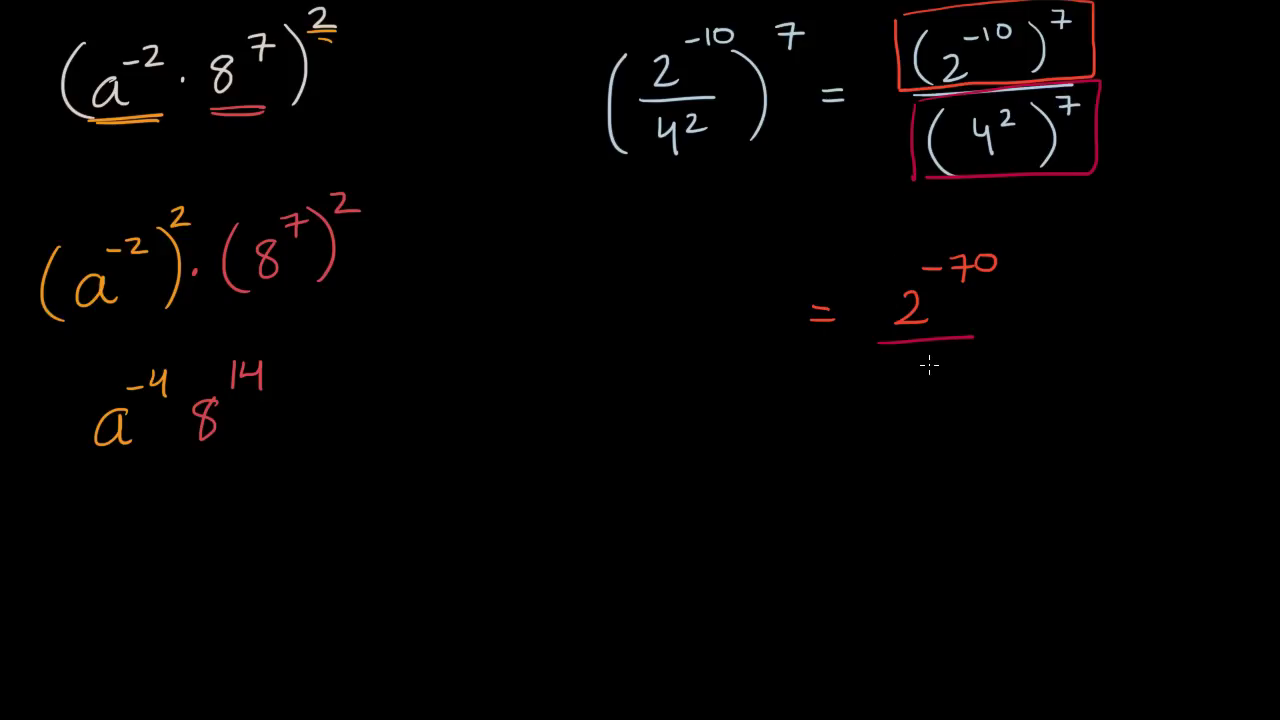 (a⁻² · 8⁷)²
(a⁻²)² · (8⁷)²
a⁻⁴ 8¹⁴
(2⁻¹⁰/4²)⁷ = (2⁻¹⁰)⁷/(4²)⁷
= 2⁻⁷⁰